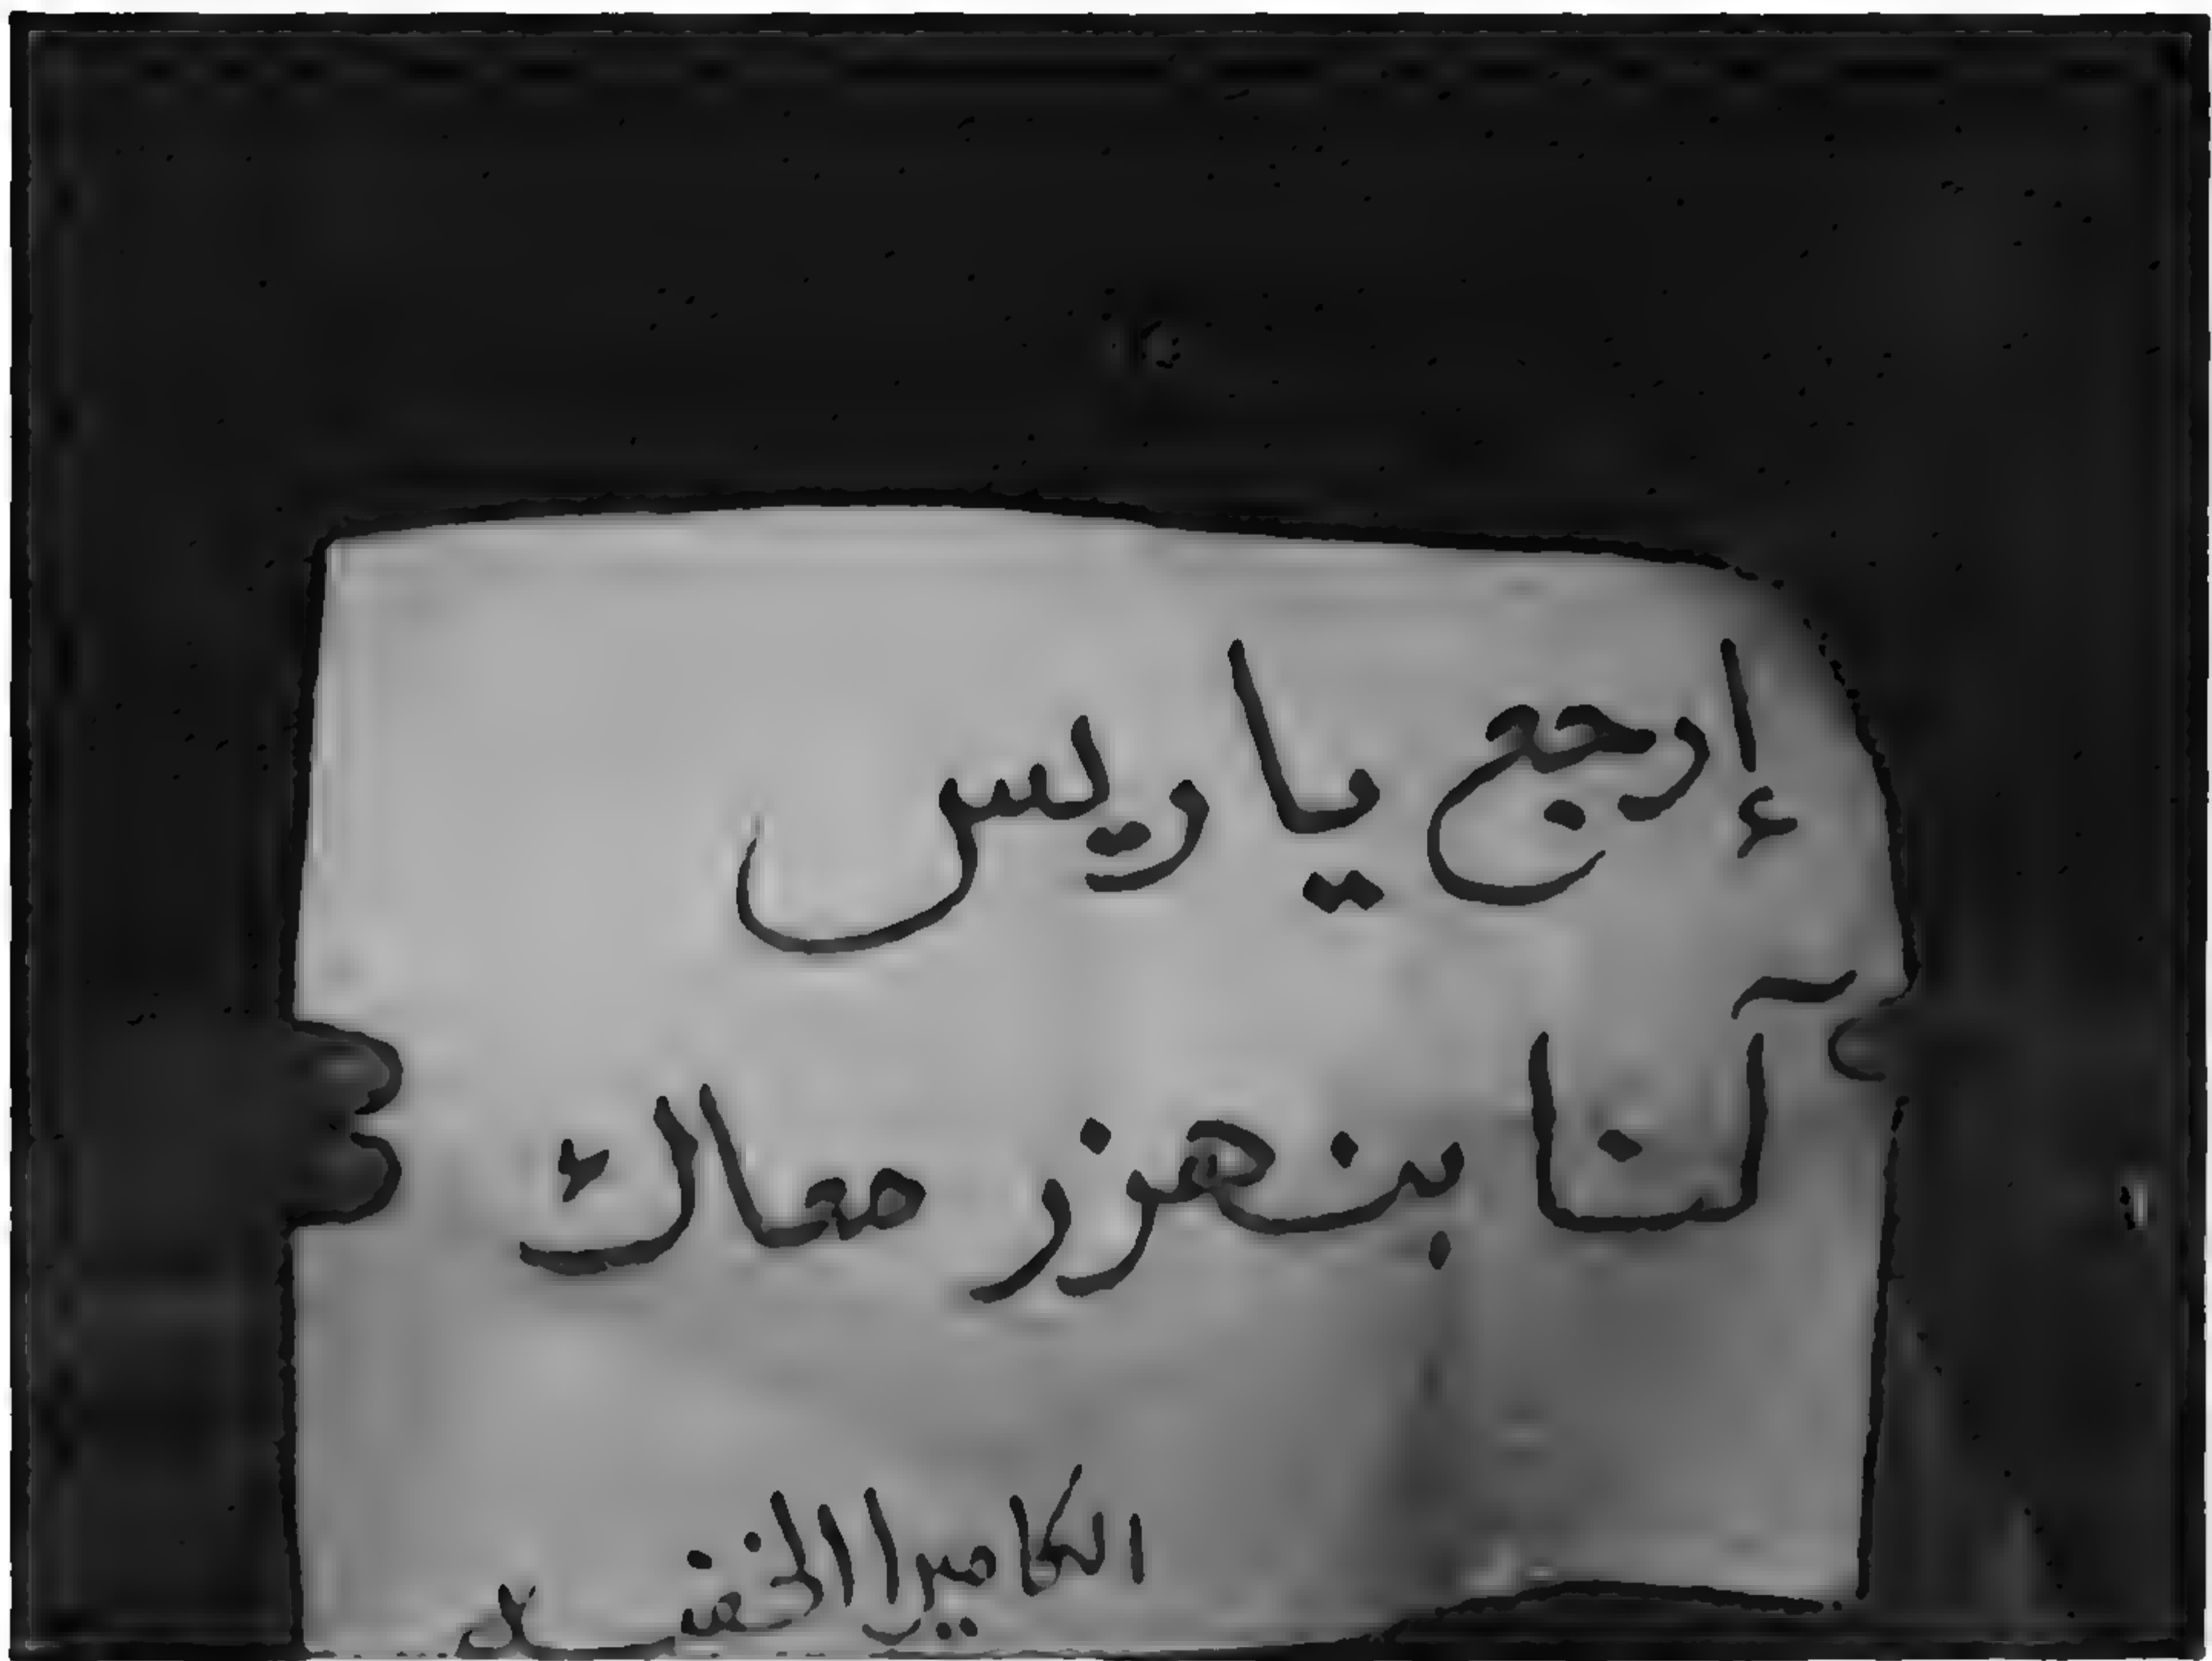 إرجع يا ريس
آلنا بنهزر معاك
الكاميرا